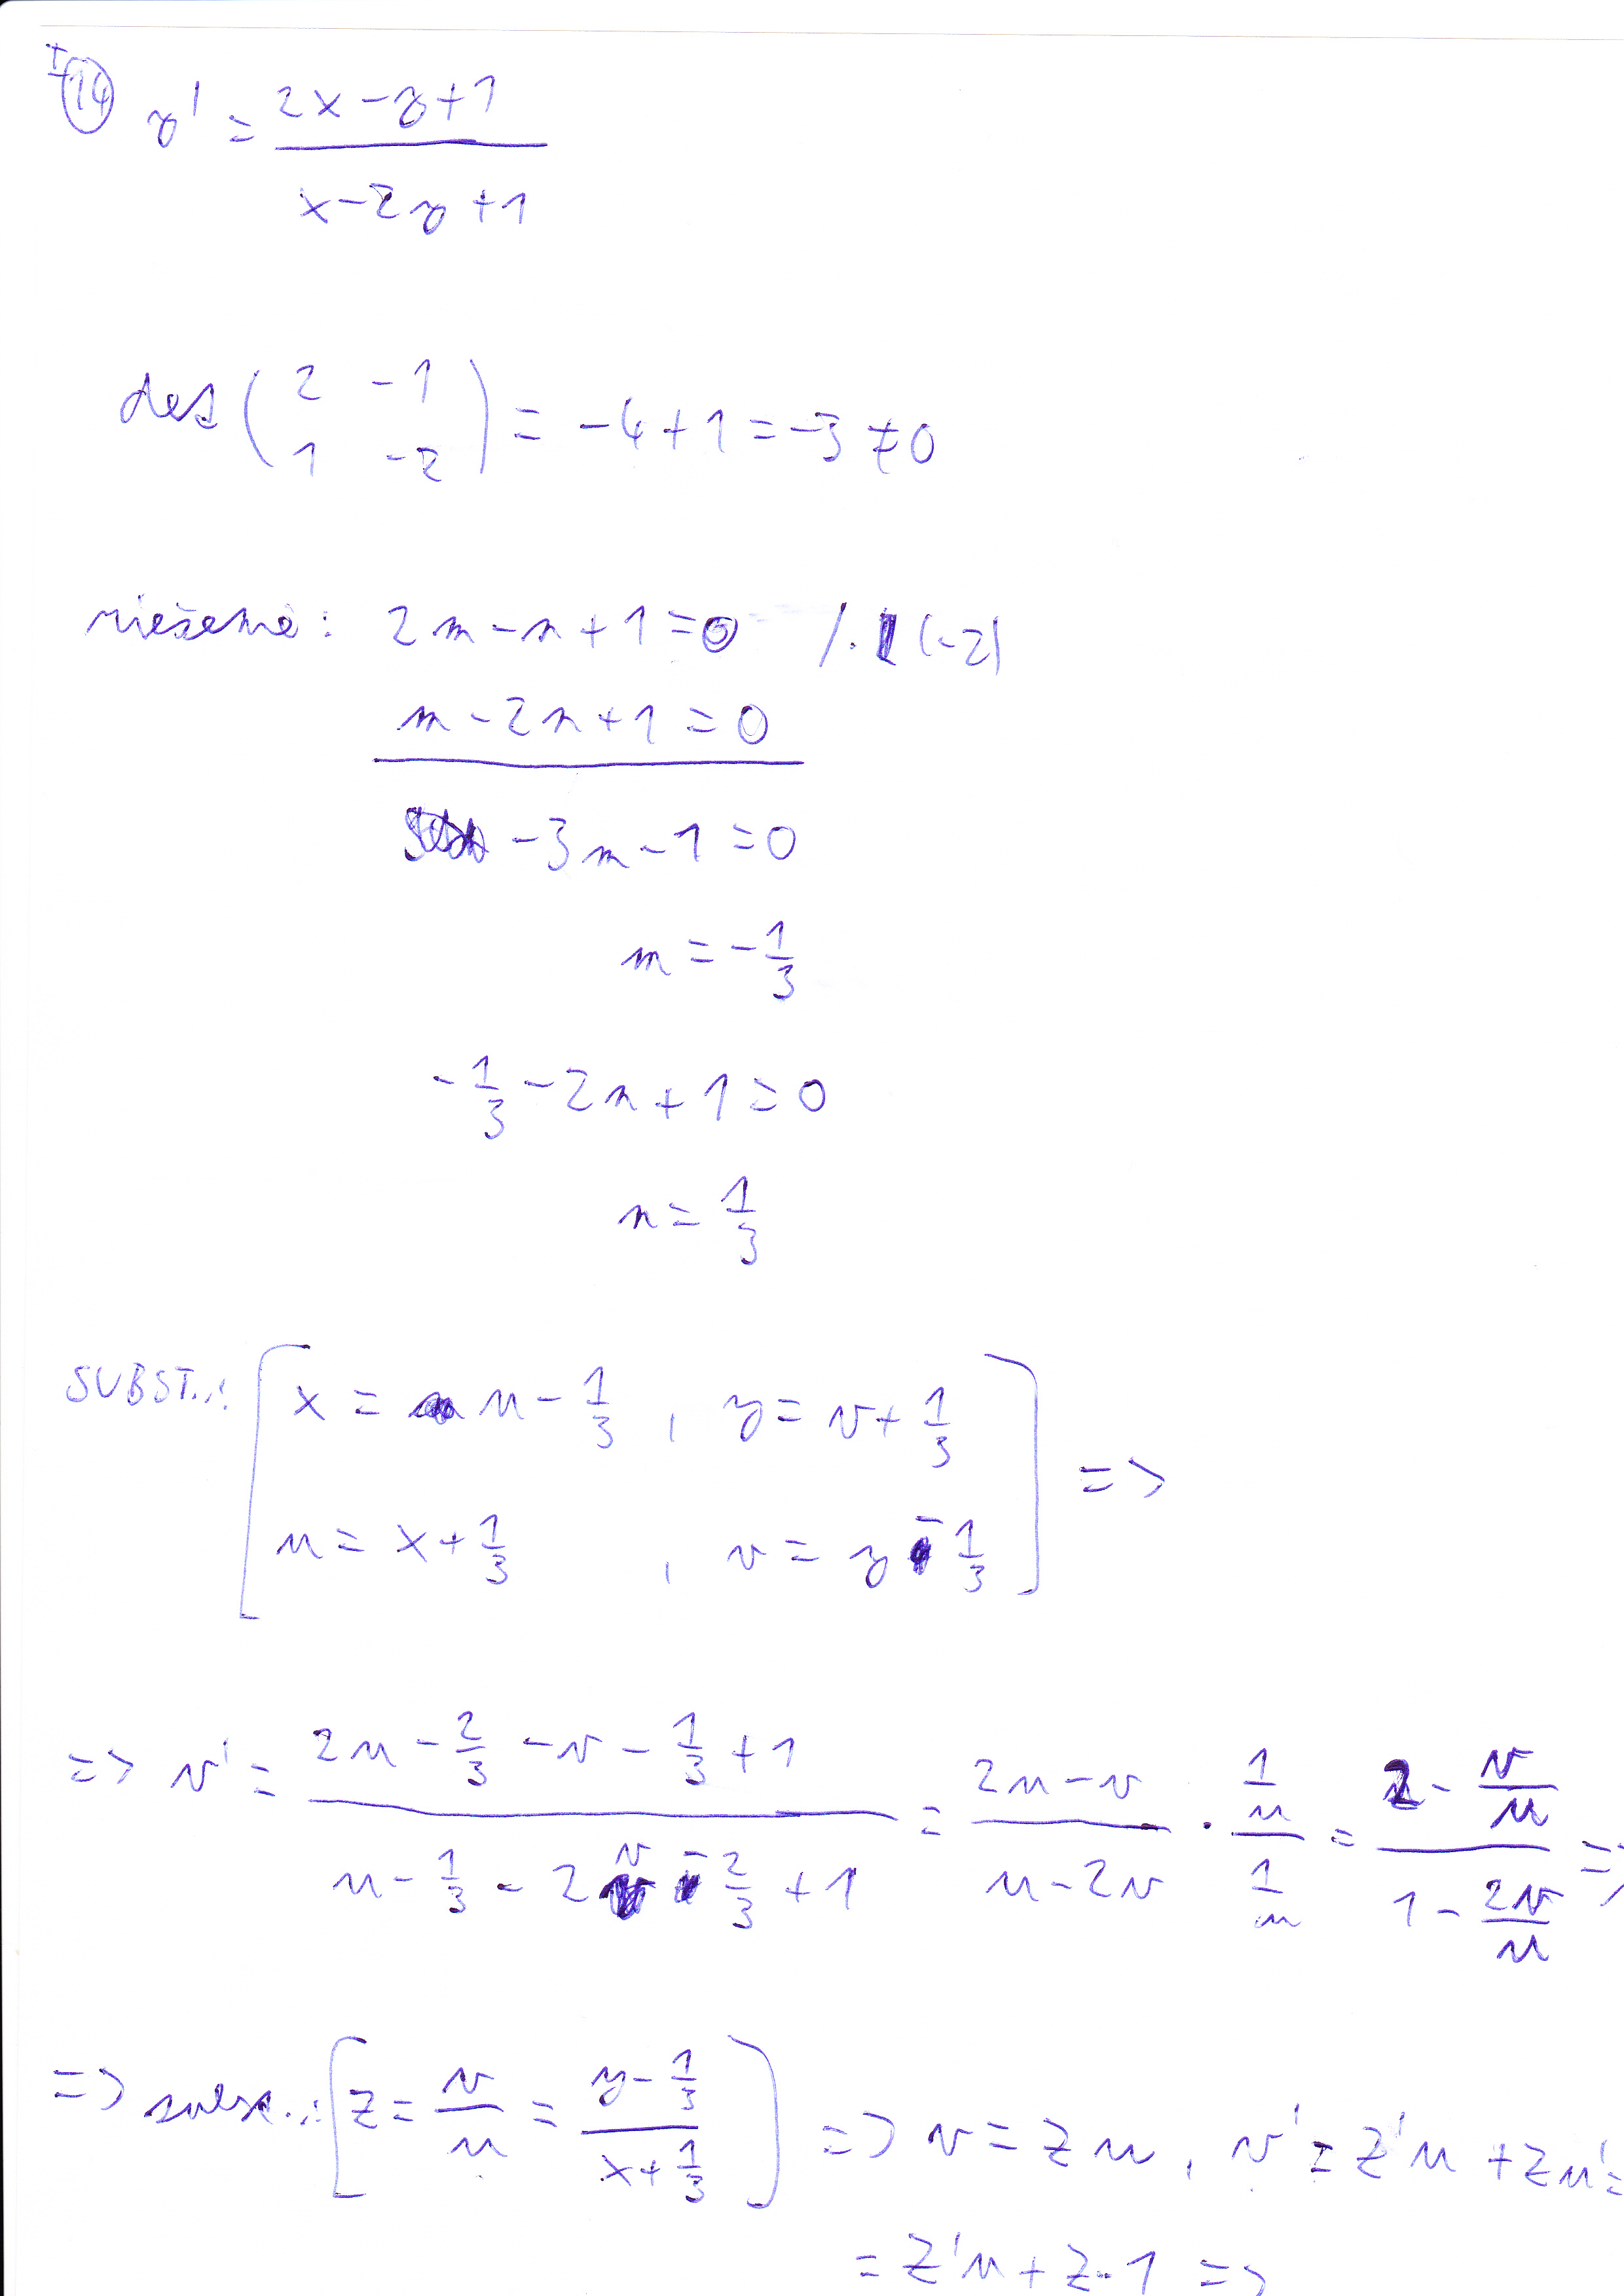 I
14 y' = (2x-y+1)/(x-2y+1)
det ( 2 -1 ; 1 -2 ) = -4+1 = -3 ≠ 0
riešeme: 2m-n+1=0 /.(-2)
m-2n+1=0
-3m-1=0
m = -1/3
-1/3 -2n+1=0
n = 1/3
SUBST.: [ x = u - 1/3 , y = v + 1/3
u = x + 1/3 , v = y - 1/3 ] =>
=> v' = (2u - 2/3 - v - 1/3 + 1)/(u - 1/3 - 2v - 2/3 + 1) = (2u-v)/(u-2v) · (1/u)/(1/u) = (2 - v/u)/(1 - 2v/u) =>
=> subst.: [ z = v/u = (y - 1/3)/(x + 1/3) ] => v = zu, v' = z'u + zu' =
= z'u + z·1 =>